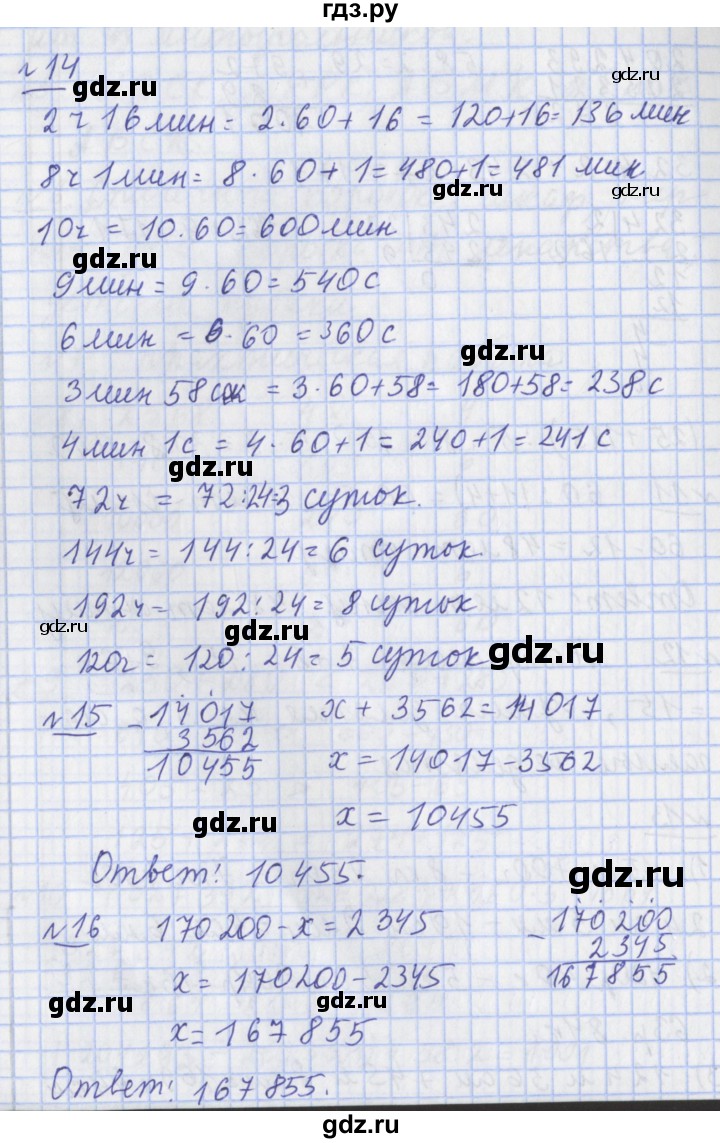 гдз.ру
№14
gdz.ru
gdz.ru
2ч 16мин = 2·60+16 = 120+16=136мин
8ч 1мин= 8·60+1=480+1=481 мин
gdz.ru
10ч = 10·60=600мин
gdz.ru
9мин = 9·60=540с
6мин = 6·60=360с
gdz.ru
3мин 58сек = 3·60+58= 180+58= 238с
4мин 1с = 4·60+1= 240+1=241с
gdz.ru
72ч = 72:24=3 суток.
144ч= 144:24=6 суток.
192ч= 192:24=8 суток
gdz.ru
gdz.ru
120ч= 120:24=5 суток
gdz.ru
№15 -14017 х+3562=14017
3562
10455 х=14017-3562
gdz.ru
х=10455
Ответ: 10455.
gdz.ru
№16 170200-х=2345 -170200
2345
х= 170200-2345 167855
gdz.ru
gdz.ru
х=167855
Ответ: 167855.
gdz.ru